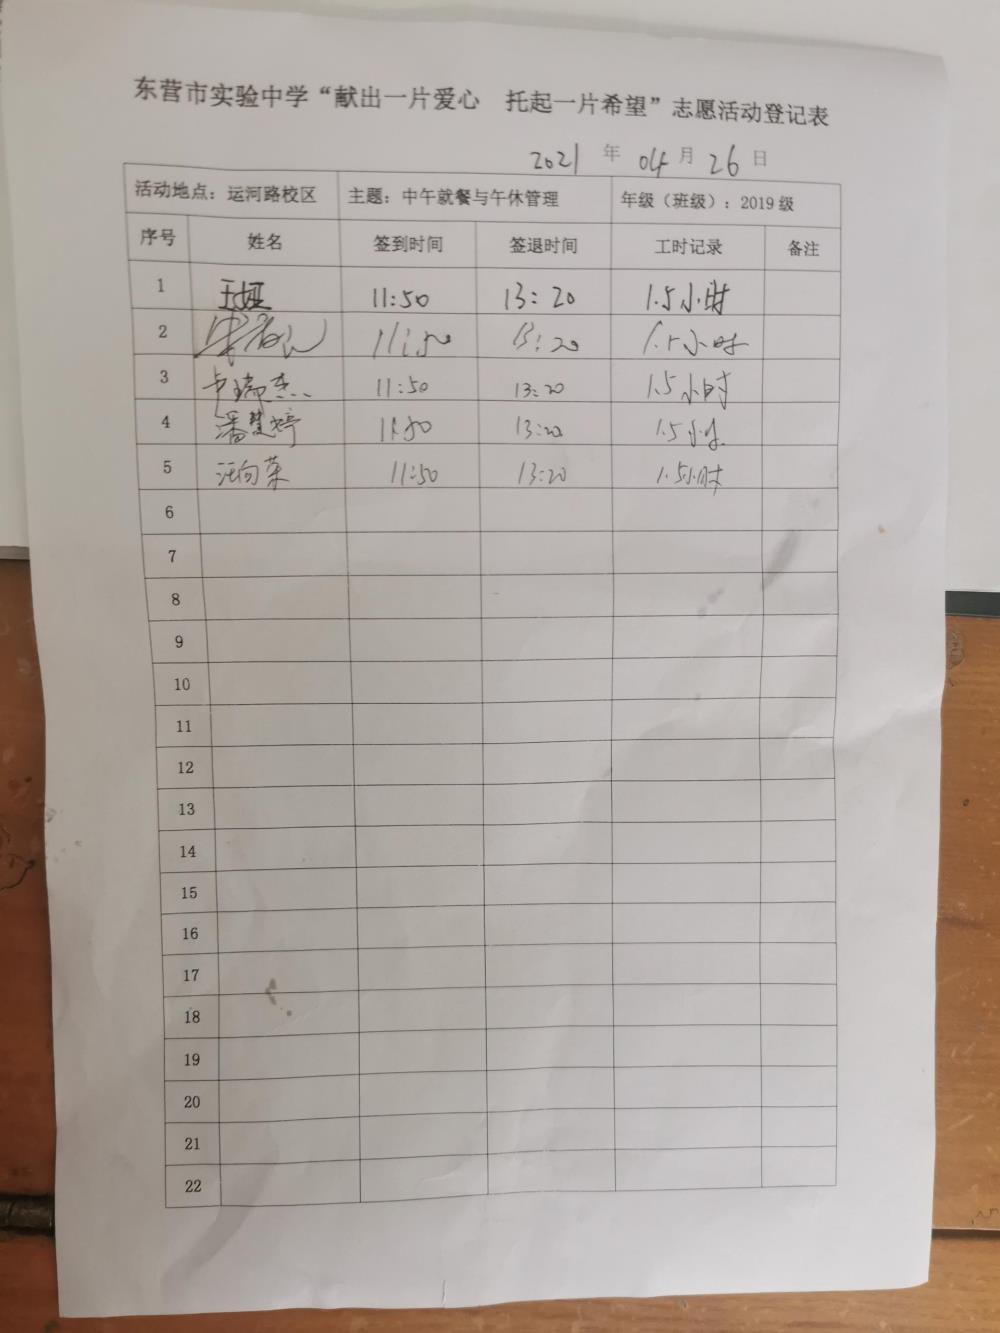 东营市实验中学“献出一片爱心 托起一片希望”志愿活动登记表
2021 年 04 月 26 日
活动地点：运河路校区 主题：中午就餐与午休管理 年级（班级）：2019 级
序号 姓名 签到时间 签退时间 工时记录 备注
1 王娅 11:50 13:20 1.5小时
2 11:50 13:20 1.5小时
3 卢瑞杰 11:50 13:20 1.5小时
4 潘慧婷 11:50 13:20 1.5小时
5 汪向荣 11:50 13:20 1.5小时
6
7
8
9
10
11
12
13
14
15
16
17
18
19
20
21
22